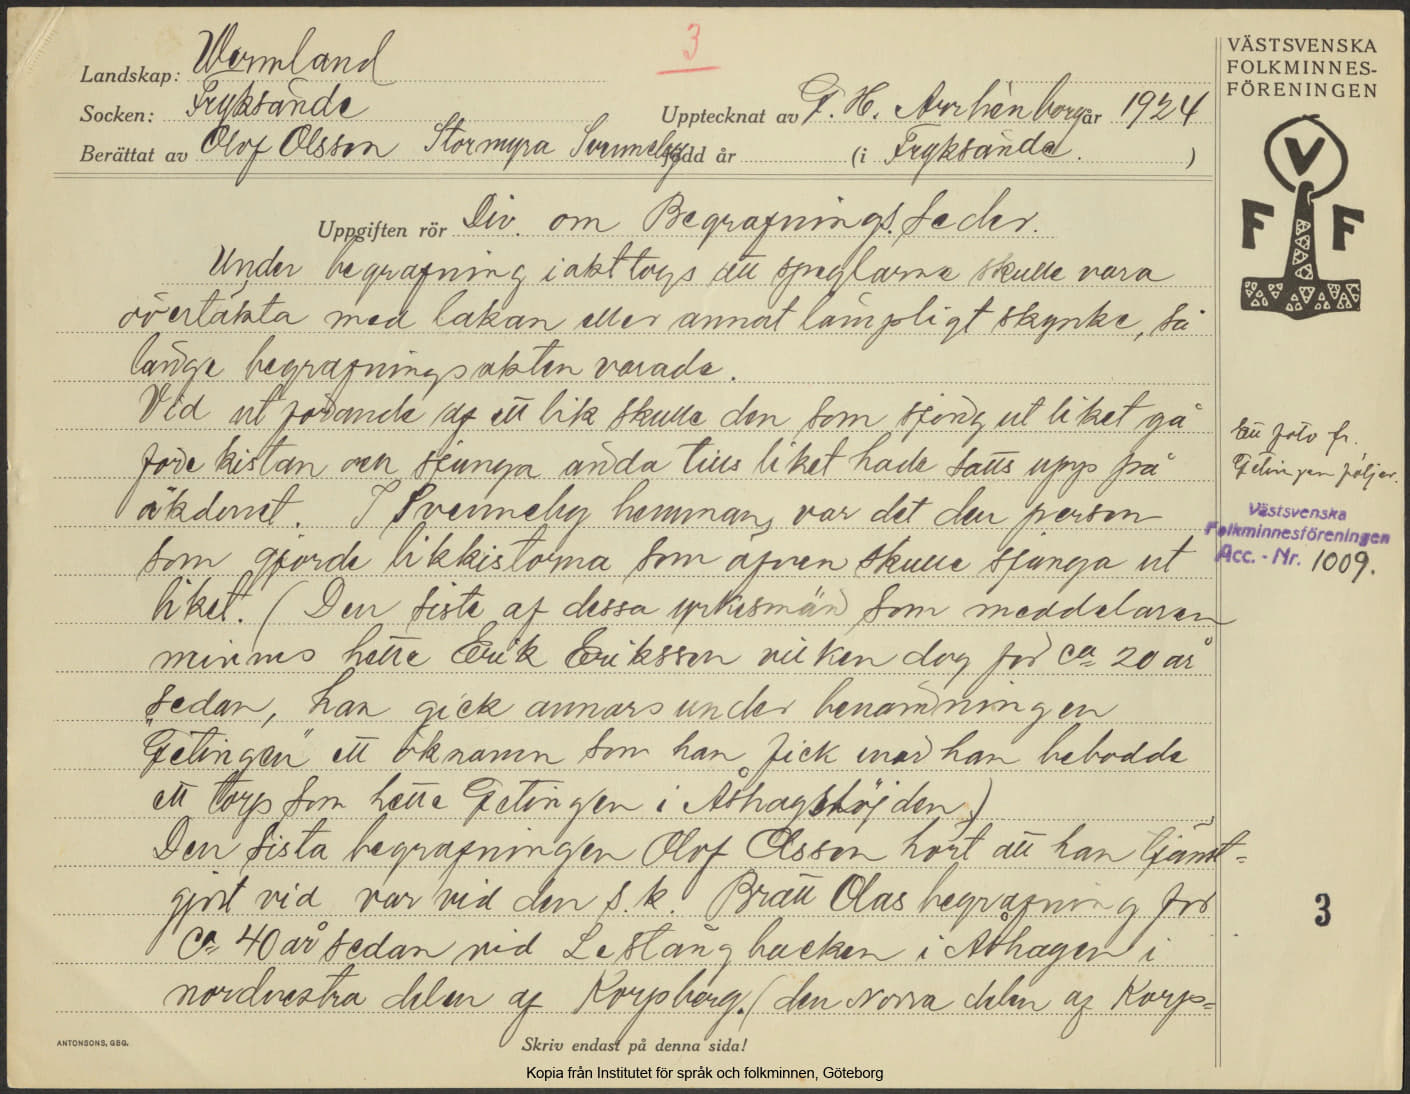 3
Landskap: Wermland
Socken: Fryksände
Upptecknat av F. H. Arrhén borg år 1924
Berättat av Olof Olsson Stormyra Svenneby född år (i Fryksände.)
Uppgiften rör Div. om Begrafnings. seder.
Under begrafning iakttogs att speglarne skulle vara
övertäkta med lakan eller annat lämpligt skynke, så
länge begrafningsakten varade.
Vid utförande af ett lik skulle den som sjöng ut liket gå
före kistan och sjunga ända tills liket hade satts upp på
åkdonet. I Svenneby hemman, var det den person
som gjorde likkistorna som äfven skulle sjunga ut
liket. (Den siste af dessa yrkesmän som meddelaren
minnes hette Erik Eriksson vilken dog för ca 20 år
sedan, han gick annars under benämningen
"Getingen" ett öknamn som han fick när han bebodde
ett torp som hette Getingen i Åshagshöjden)
Den sista begrafningen Olof Olsson hört att han tjänst=
gjort vid var vid den s.k. Bratt Olas begrafning för
ca 40 år sedan vid Lestång backen i Åshagen i
nordvestra delen af Korpberg. (den norra delen af Korp=
Skriv endast på denna sida!
ANTONSONS, GBG.
Kopia från Institutet för språk och folkminnen, Göteborg
VÄSTSVENSKA
FOLKMINNES-
FÖRENINGEN
V
F F
Ett foto fr.
Getingen följer.
Västsvenska
Folkminnesföreningen
Acc. - Nr. 1009.
3